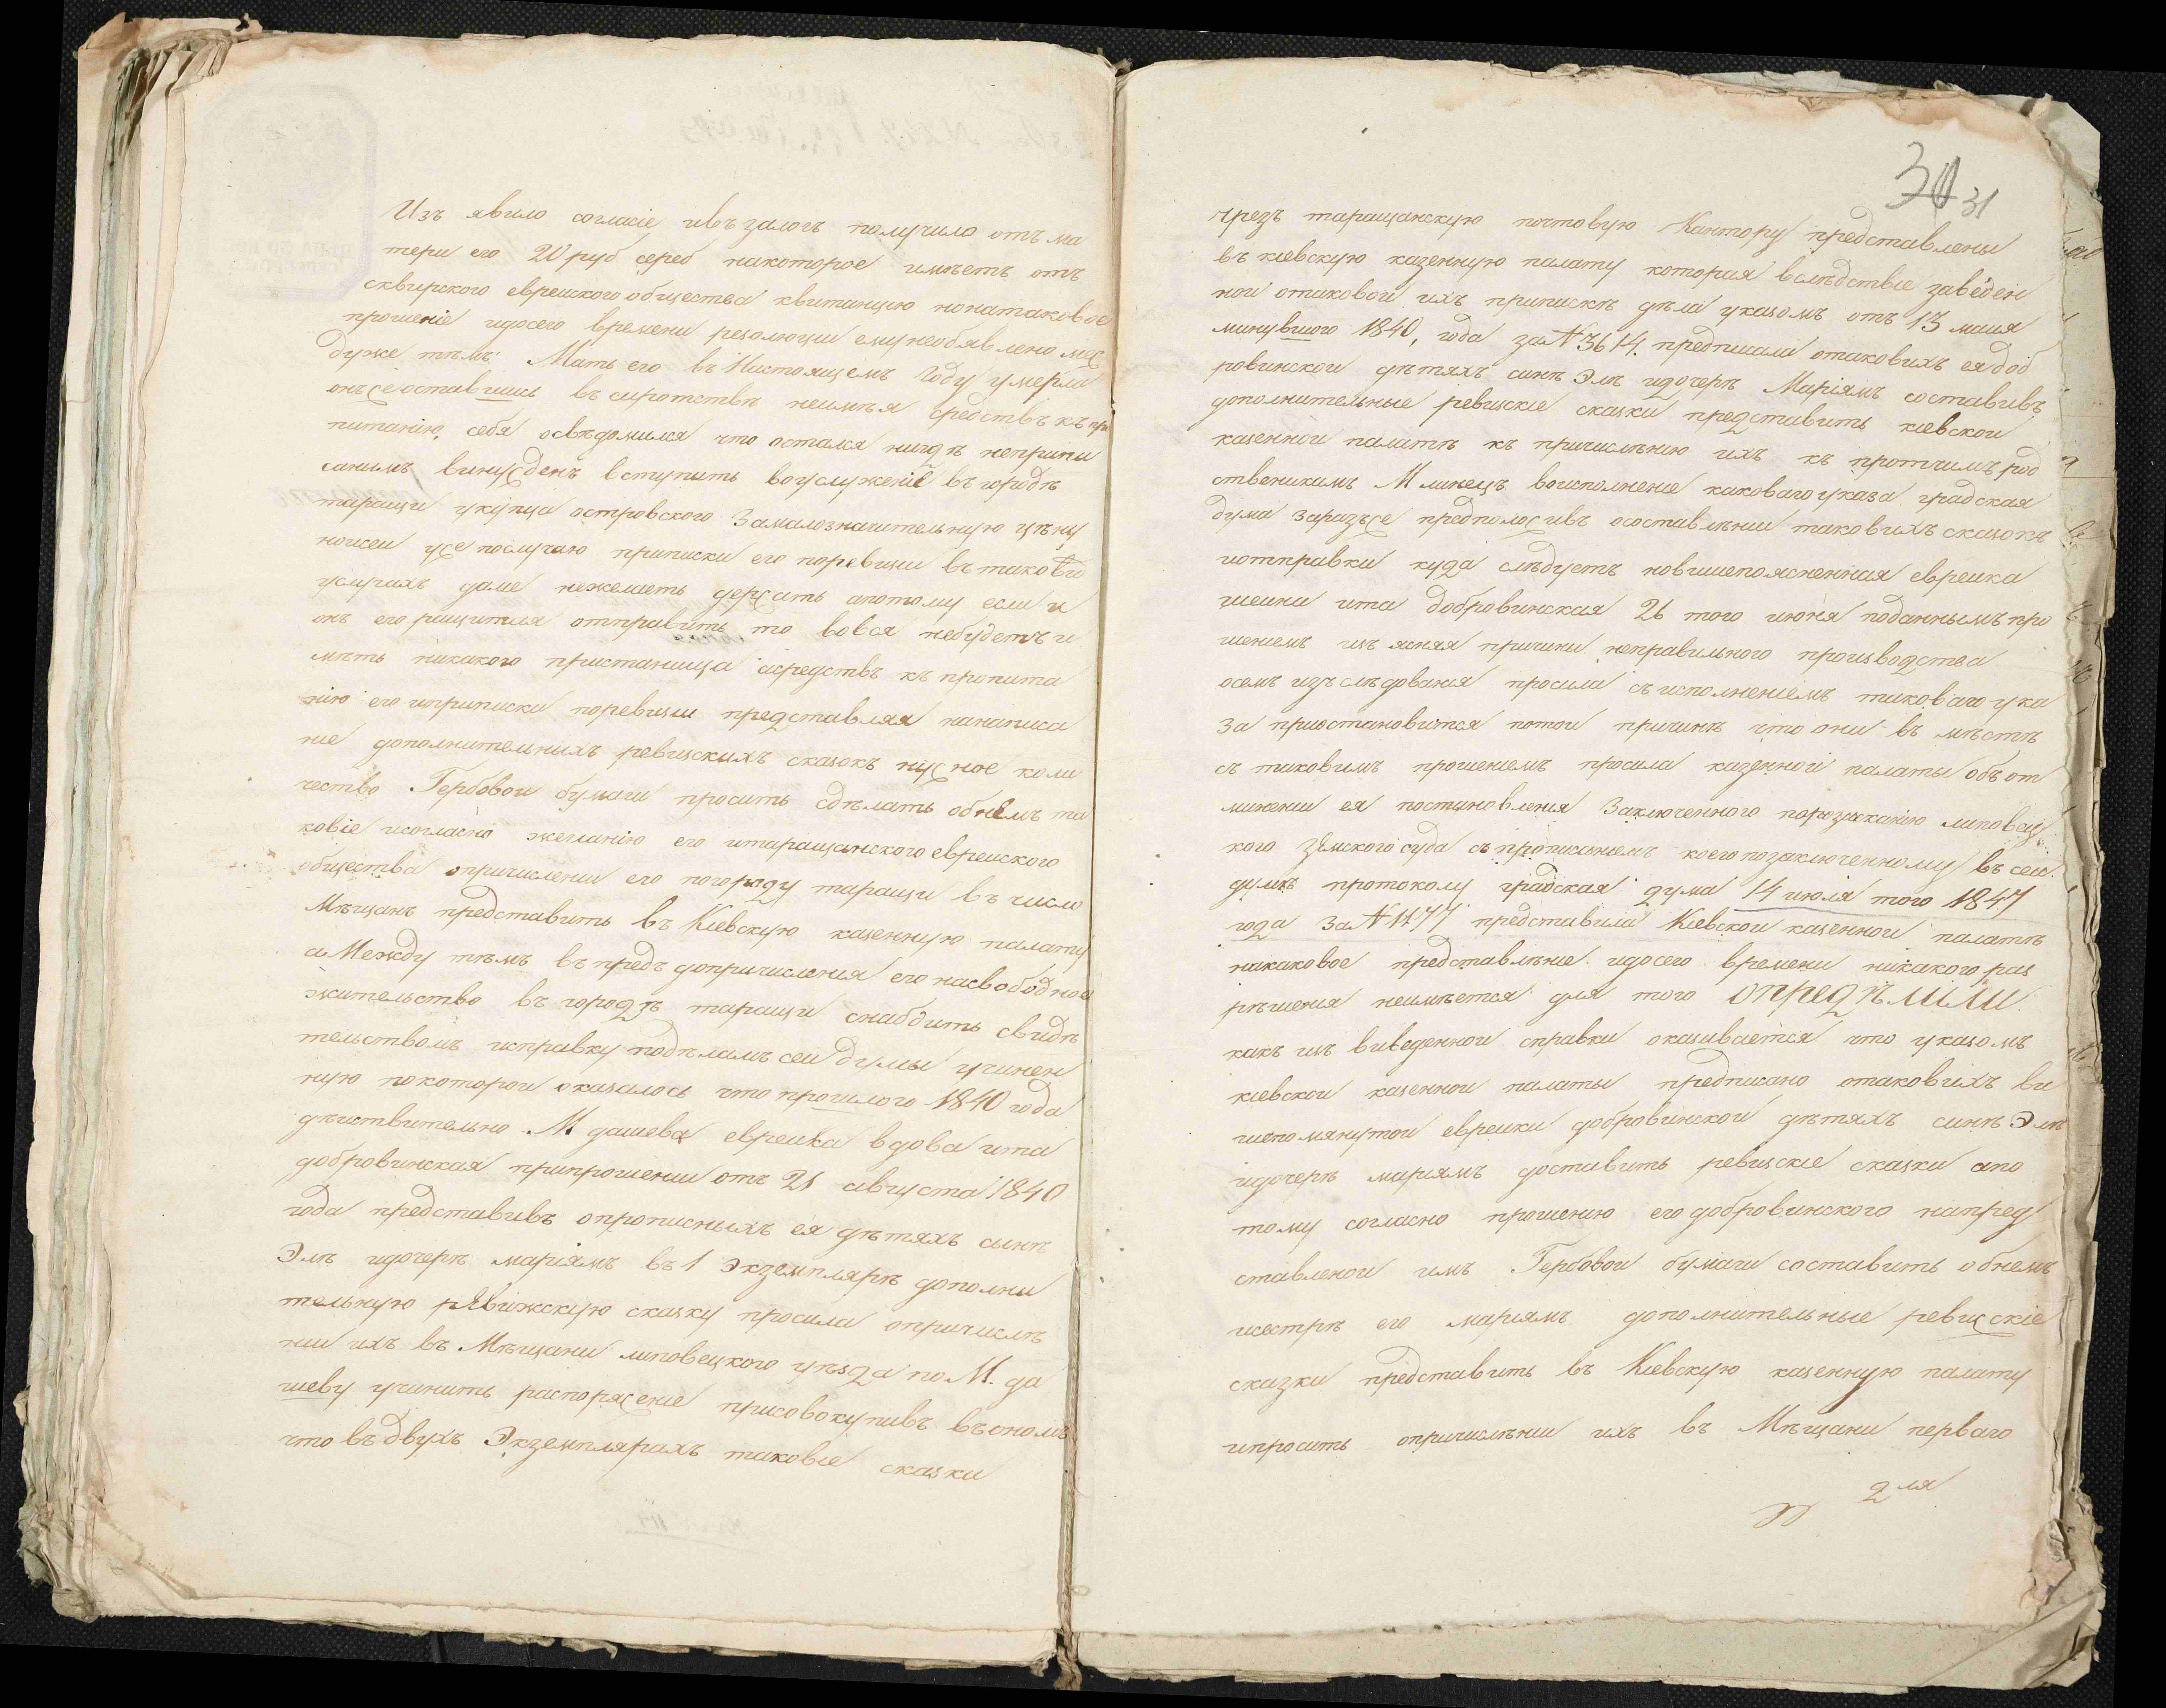 Изъ явило согласіе ивъ залогъ получило отъ ма
тери его 20 руб сереб накоторое имѣетъ отъ
сквирского еврейского общества квитанцию нонатаковое
прошеніе идосего времени резолюціи ему необявлено меж
дуже тѣмъ Мать его въ Настоящемъ Году умерла
онъже оставшись въ сиротствѣ неимѣя средствъ къ про
питанію себя освѣдомился что остался нигдѣ неприпи
санымъ винужденъ вступить воуслуженіе въ городѣ
таращи укупца островского Замалозначительную цѣну
ноисеи уже послучаю приписки его поревизии въ таково
услугахъ далѣе нежелаетъ держать апотому если и
онъ его ращитая отправить то вовся небудетъ и
мѣть никакого пристанища исредствъ къ пропита
нію его иприписки поревизии представляя нанаписа
ние дополнителныхъ ревизскихъ сказокъ нужное коли
чество Гербовои бумаги проситъ сдѣлать обнемъ та
ковіе исогласно желанію его итаращанского евреиского
общества опричислении его погороду таращи въ число
Мѣщанъ представить въ Кіевскую казенную палату
а Между тѣмъ въ предъ допричисления его насвободное
жительство въ городѣ таращи снабдить свидѣ
тельствомъ исправку подѣламъ сеи думы учинен
ную покоторои оказалось что прошлого 1840 года
дѣиствительно М дашева евреика вдова ита
добровинская припрошении отъ 21 августа 1840
года представивъ опрописныхъ ея дѣтяхъ сынѣ
Элѣ идочерѣ маріямъ въ 1 экземплярѣ дополни
тельную ревижскую сказку просила опричислѣ
нии ихъ въ Мѣщани липовецкого уѣзда по М. да
шеву учинить распоряженіе присовокупивъ въ ономъ
что въ двухъ Экземплярахъ таковіе сказки
30 31
чрезъ таращанскую почтовую Кантору представлени
въ кіевскую казенную палату которая вслѣдствіе заведен
нои отаковои ихъ припискѣ дѣла указомъ отъ 13 маия
минувшого 1840, года за № 3614. предписала отаковихъ ея доб
ровинскои дѣтяхъ синѣ Элѣ идочерѣ Маріямъ составивъ
дополнительные ревизские сказки представить кіевскои
казеннои палатѣ къ причислѣнию ихъ къ протчимъ род
ственикамъ Млинецъ воисполнение каковаго указа градская
дума заразъже предположивъ осоставлѣнии таковихъ сказокъ
иотправки куда слѣдуетъ новишепоясненная евреика
ита добровинская 26 того июня поданнымъ про
шениемъ изъясняя причини неправильного производства
осемъ изъслѣдования просила съисполнениемъ таковаго ука
за приостановится потои причинѣ что они въ мѣстѣ
съ таковимъ прошениемъ просила казеннои палаты объот
минении ея постановления Заключенного порозысканію липовец
кого земского суда съпрописаниемъ коего позаключенному въ сеи
думѣ протоколу градская дума 14 июля того 1847
года за № 1177 представила Кіевскои казеннои палатѣ
накаковое представлѣние идосего времени никакого раз
рѣшения неимѣется для того опредѣлили
какъ изъ виведеннои справки оказывается что указомъ
кіевскои казеннои палаты предписано отаковихъ ви
шепомянутои евреики добровинскои дѣтяхъ синѣ Элѣ
идочерѣ мариямъ доставить ревизскіе сказки апо
тому согласно прошению его добровинского напред
ставленои имъ Гербовои бумаги составить обнемъ
исестрѣ его мариямъ дополнительные ревизскіе
сказки представить въ Кіевскую казенную палату
ипросить опричислѣнии ихъ въ Мѣщани перваго
для